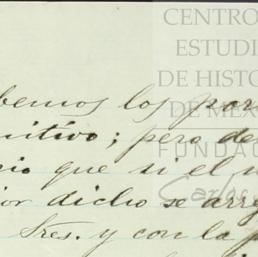 CENTRO
ESTUDI
DE HISTO
DE MÉX
FUNDAC
Carlos
bemos los por
nitivo; pero de
cio que si el
ior dicho se arr
Sres. y con la p